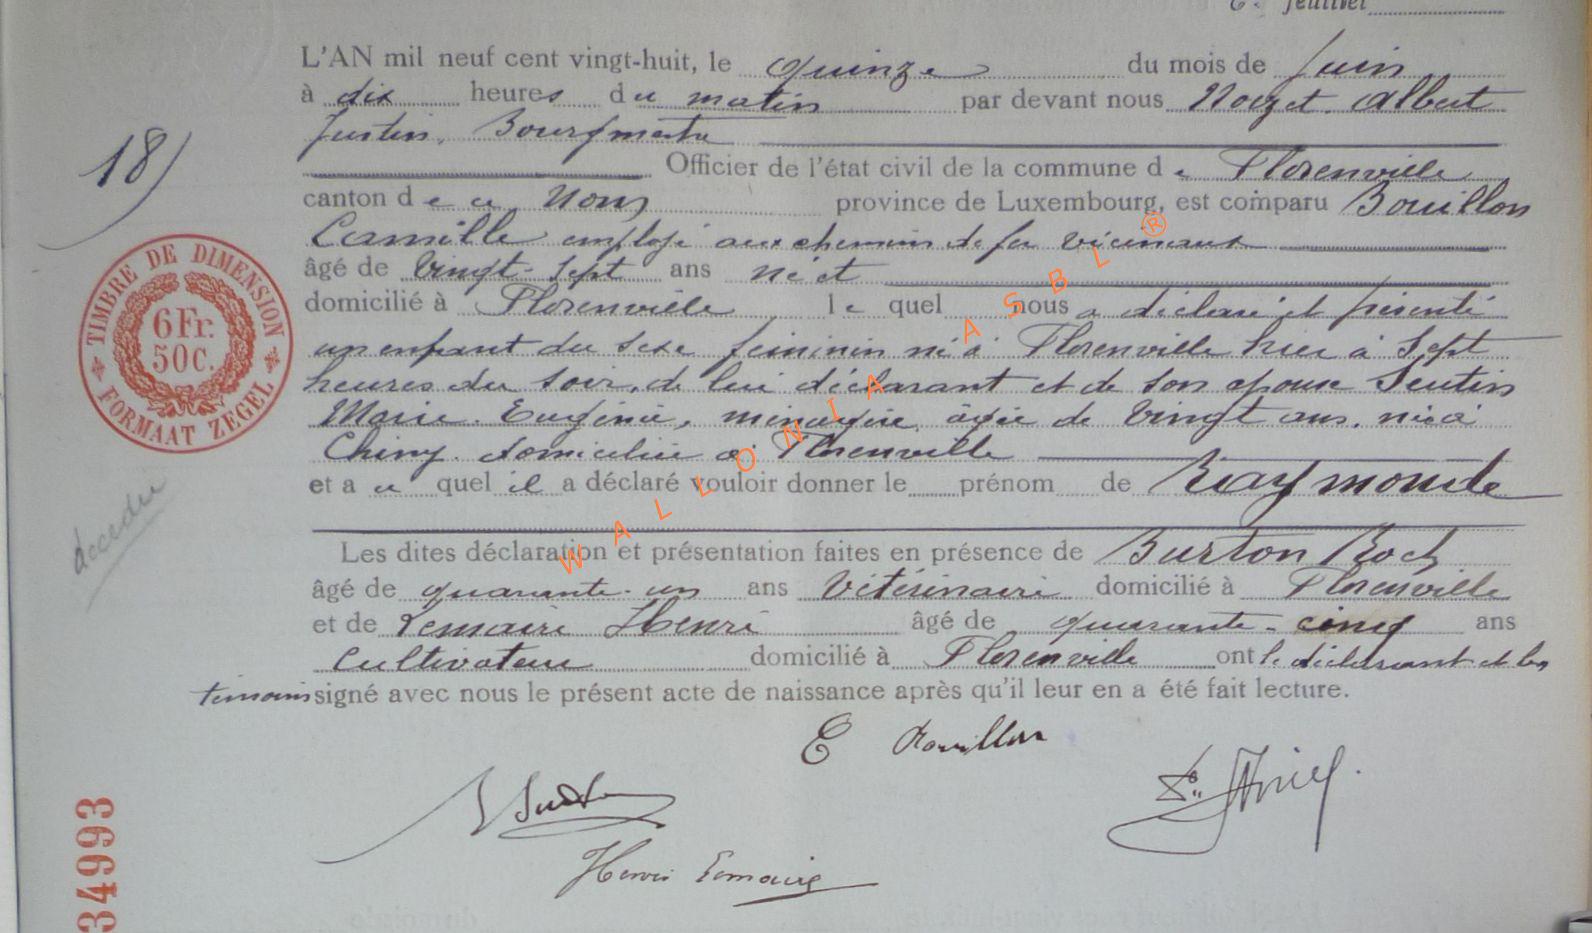 C. feuillet
L'AN mil neuf cent vingt-huit, le quinze du mois de Juin
à dix heures du matin par devant nous Noizet Albert
Justin, Bourgmestre
18)
Officier de l'état civil de la commune de Florenville
canton de ce Nom province de Luxembourg, est comparu Bouillon
Camille employé aux chemins de fer vicinaux
âgé de vingt-sept ans né et
domicilié à Florenville lequel nous a déclaré et présenté
un enfant du sexe féminin né à Florenville hier à sept
heures du soir, de lui déclarant et de son épouse Sentin
Marie Eugénie, ménagère âgée de vingt ans, née à
Chiny domiciliée à Florenville
et a u quel il a déclaré vouloir donner le prénom de Raymonde
Les dites déclaration et présentation faites en présence de Burton Roch
âgé de quarante-un ans Vétérinaire domicilié à Florenville
et de Lemaire Henri âgé de quarante-cinq ans
Cultivateur domicilié à Florenville ont le déclarant et les
témoins signé avec nous le présent acte de naissance après qu'il leur en a été fait lecture.
C Bouillon
Henri Lemaire
TIMBRE DE DIMENSION
6 Fr.
50 C.
FORMAAT ZEGEL
decedee
34993
WALLONIA ASBL®